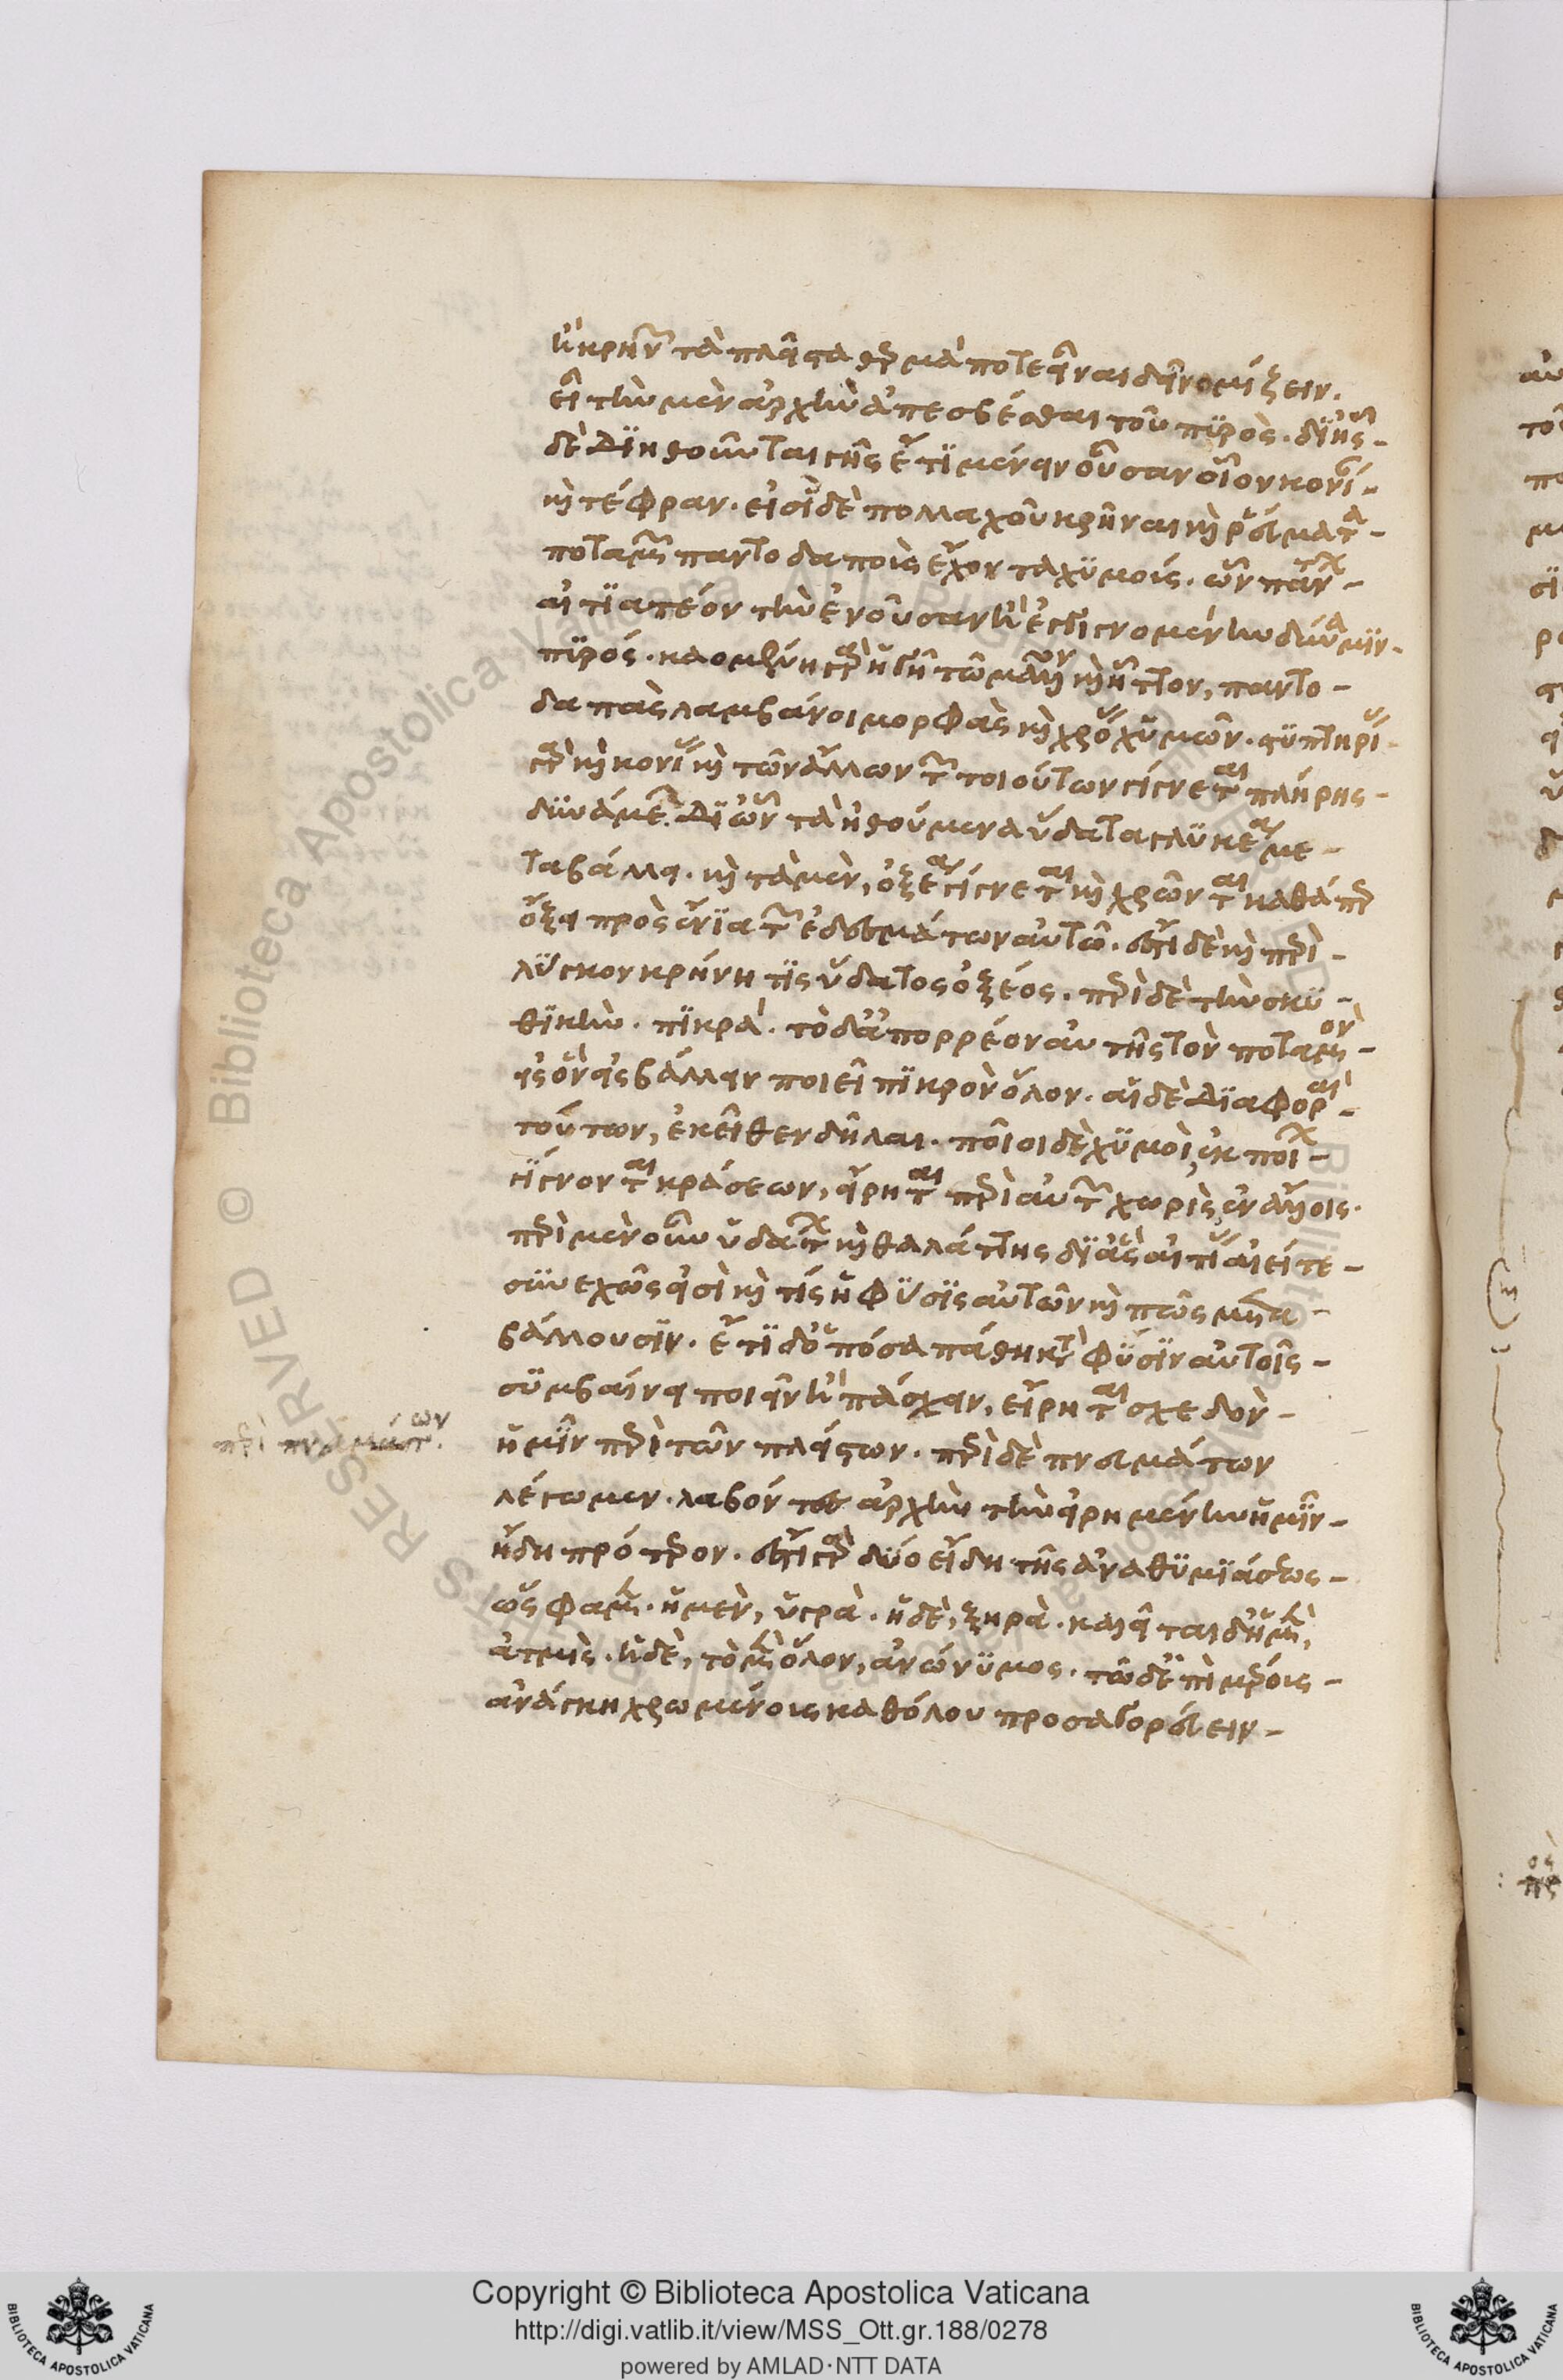 ἢ κρηνῶν τὰ πλεῖστα θερμά ποτε εἶναι δεῖ νομίζειν.
εἶτα τὴν μὲν ἀρχὴν ἀπεσβέσθαι τοῦ πυρός. δι' ἧς
δὲ διηθοῦνται γῆς ἔτι μένειν οὖσαν οἷον κονίαν
καὶ τέφραν. εἰσὶ δὲ πολλαχοῦ κρῆναι καὶ ῥεύματα
ποταμῶν παντοδαποὺς ἔχοντα χυμούς. ὧν πάντων
αἰτιατέον τὴν ἐνοῦσαν ἢ ἐγγιγνομένην δύναμιν
πυρός. καομένη γὰρ ἡ γῆ τῷ μᾶλλον καὶ ἧττον, παντο
δαπὰς λαμβάνει μορφὰς καὶ χρόας χυμῶν. στυπτηρίας
γὰρ καὶ κονίας καὶ τῶν ἄλλων τῶν τοιούτων γίγνεται πλήρης
δυνάμεων. δι' ὧν τὰ ἠθούμενα ὕδατα γλυκέα με
ταβάλλει. καὶ τὰ μὲν, ὀξέα γίγνεται καὶ χρῶνται καθάπερ
ὄξει πρὸς ἔνια τῶν ἐδεσμάτων αὐτῷ. ἔστι δὲ καὶ περὶ
λύγκον κρήνη τις ὕδατος ὀξέος. περὶ δὲ τὴν σκυ
θικὴν. πικρά. τὸ δ' ἀπορρέον αὐτῆς τὸν ποταμὸν
εἰς ὃν εἰσβάλλειν ποιεῖ πικρὸν ὅλον. αἱ δὲ διαφοραὶ
τούτων, ἐκεῖθεν δῆλαι. ποῖοι δὲ χυμοὶ, ἐκ ποίων
γίγνονται κράσεων, εἴρηται περὶ αὐτῶν χωρὶς, ἐν ἄλλοις.
περὶ μὲν οὖν ὑδάτων καὶ θαλάττης δι' ἃς αἰτίας ἀεί τε
συνεχῶς εἰσὶ καὶ τίς ἡ φύσις αὐτῶν καὶ πῶς μετα
βάλλουσιν. ἔτι δ' ὁπόσα πάθη κατὰ φύσιν αὐτοῖς
συμβαίνει ποιεῖν ἢ πάσχειν, εἴρηται σχεδὸν
ἡμῖν περὶ τῶν πλείστων. περὶ δὲ πνευμάτων
περὶ πνευμάτων.
λέγωμεν. λαβόντες ἀρχὴν τὴν εἰρημένην ἡμῖν
ἤδη πρότερον. ἔστι γὰρ δύο εἴδη τῆς ἀναθυμιάσεως
ὥς φαμεν. ἡ μὲν, ὑγρά. ἡ δὲ, ξηρά. καλεῖται δ' ἡ μὲν,
ἀτμίς. ἡ δὲ, τὸ μὲν ὅλον, ἀνώνυμος. τῷ δ' ἐπὶ μέρους
ἀνάγκη χρωμένοις καθόλου προσαγορεύειν